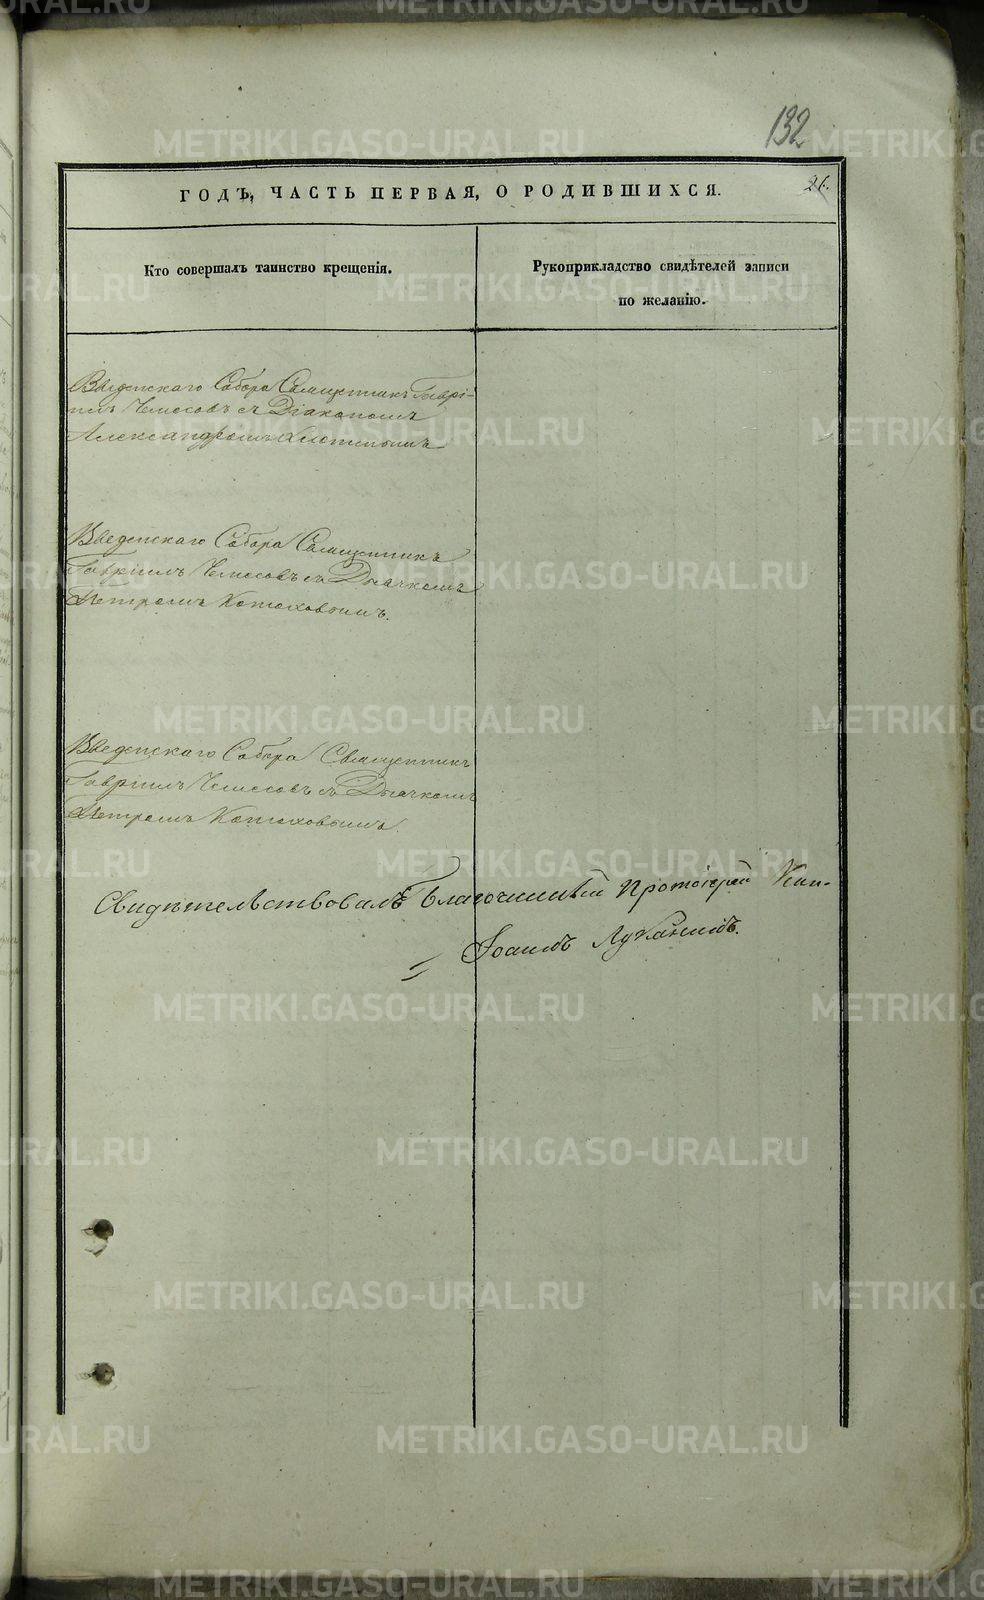 132
ГОДЪ, ЧАСТЬ ПЕРВАЯ, О РОДИВШИХСЯ.
26.
Кто совершалъ таинство крещенія.
Рукоприкладство свидѣтелей записи
по желанію.
Введенскаго Собора Священникъ Гаврі-
илъ Чемесовъ съ Діакономъ
Александромъ
Введенскаго Собора Священникъ
Гавріилъ Чемесовъ съ Дьячкомъ
Петромъ Котюховымъ.
Введенскаго Собора Священникъ
Гавріилъ Чемесовъ съ Дьячкомъ
Петромъ Котюховымъ.
Свидѣтельствовалъ Благочинный Протоіерей
Іоаннъ Луканинъ.
METRIKI.GASO-URAL.RU